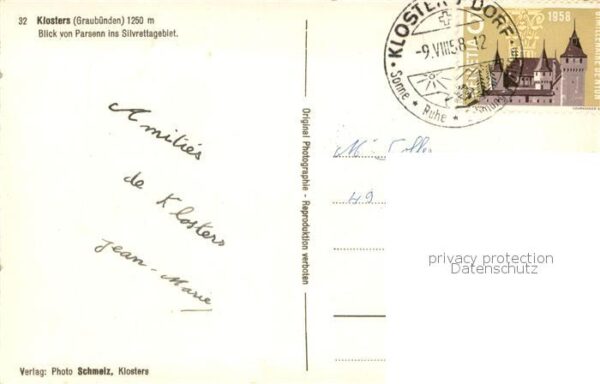 32 Klosters (Graubünden) 1250 m
Blick von Parsenn ins Silvrettagebiet.
Amitiés
de Klosters
Jean-Marie
Verlag: Photo Schmelz, Klosters
Original Photographie - Reproduktion verboten
KLOSTERS DORF
-9.VIII.58.-12
Sonne * Ruhe *
HELVETIA 5
1958
49
privacy protection
Datenschutz